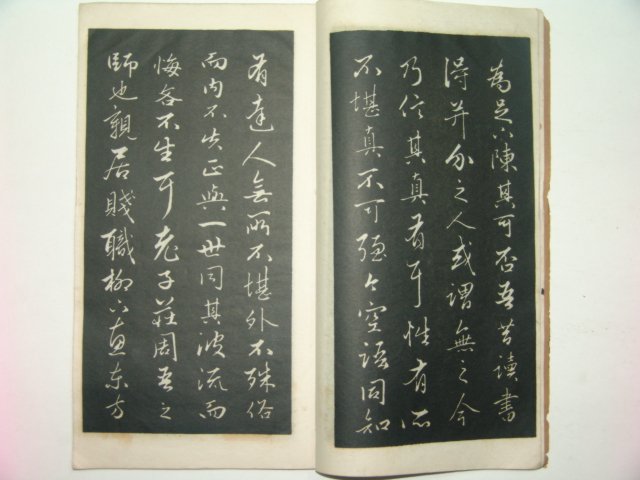 為足下陳其可否吾昔讀書
得并介之人或謂無之今
乃信其真有耳性有所
不堪真不可強今空語同知
有達人無所不堪外不殊俗
而内不失正與一世同其波流而
悔吝不生耳老子莊周吾之
師也親居賤職柳下惠東方